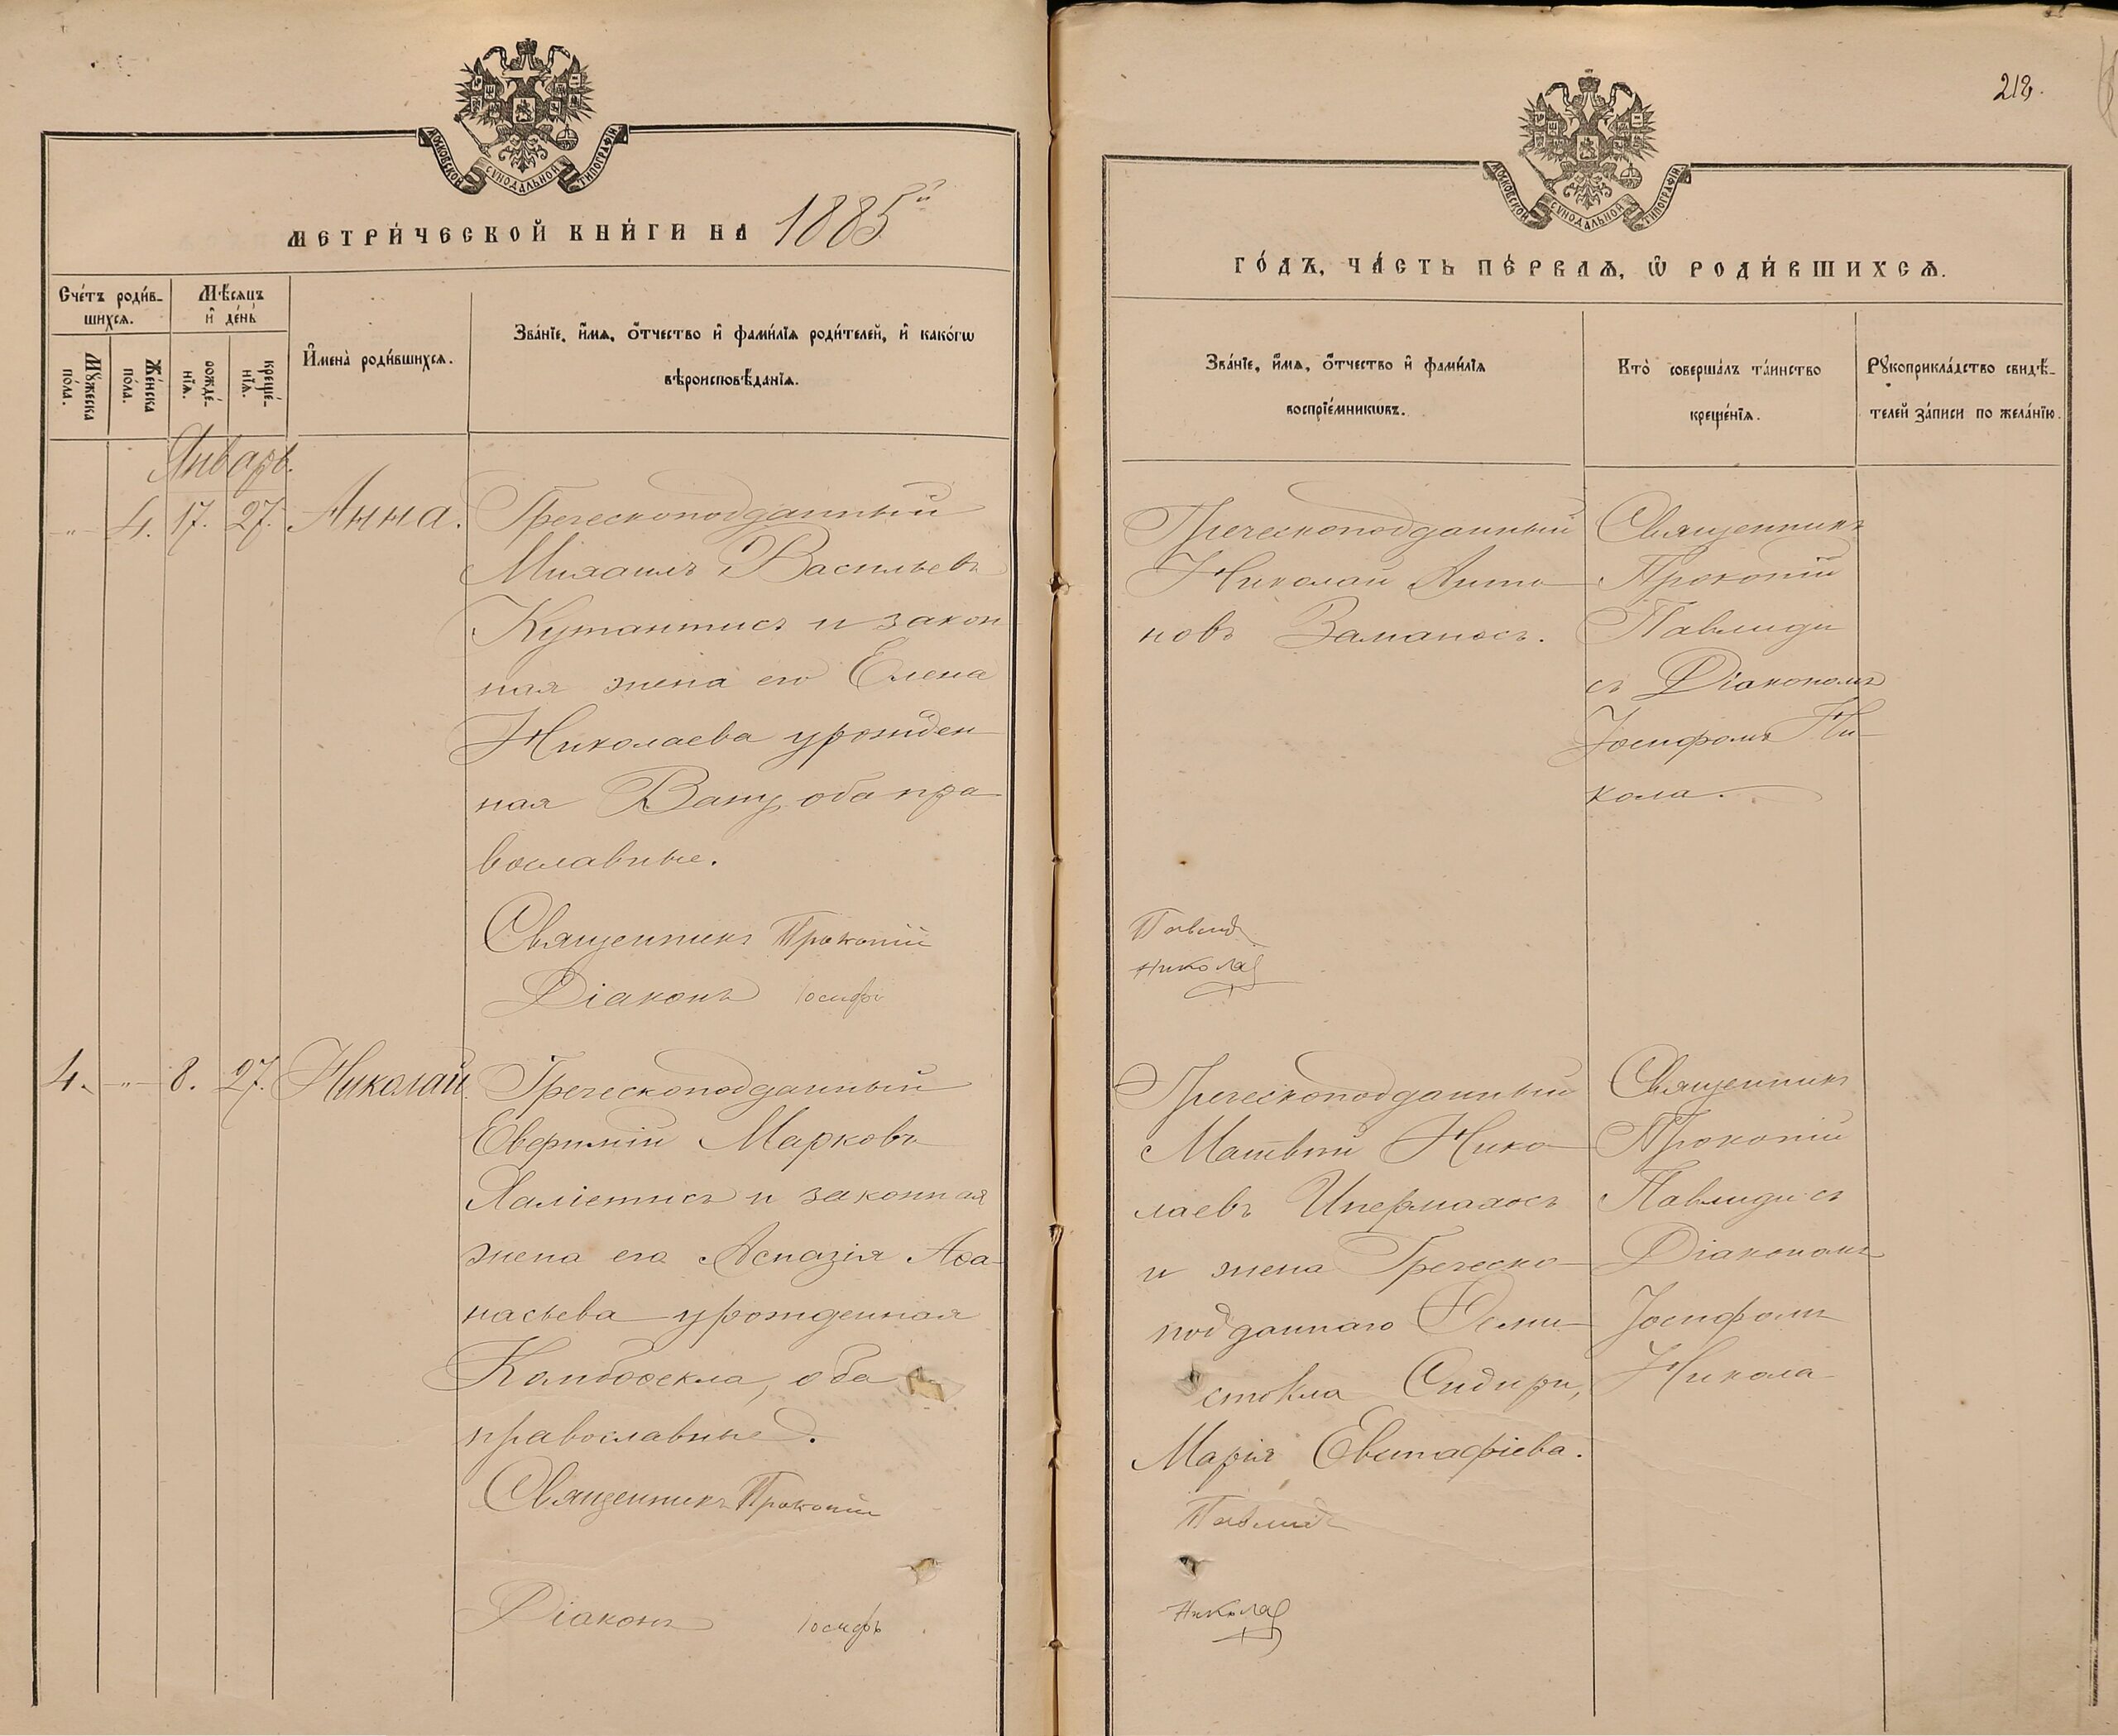 МОСКОВСКОЙ СУНОДАЛЬНОЙ ТИПОГРАФІИ
МЕТРИ́ЧЕСКОЙ КНИ́ГИ НА 1885й
Сче́тъ роди́в-
шихсѧ.
Мѣ́сѧцъ
и҆ де́нь
Мꙋ́жеска
по́ла.
Же́нска
по́ла.
рожде́-
нїѧ.
креще́-
нїѧ.
И҆мена̀ роди́вшихсѧ.
Зва́нїе, и҆́мѧ, ѻ҆́тчество и҆ фами́лїѧ роди́телей, и҆ како́гѡ
вѣроисповѣ́данїѧ.
Январь.
„ 4. 17. 27. Анна.
Греческоподданный
Михаилъ Васильевъ
Кутантисъ и закон
ная жена его Елена
Николаева урожден
ная Вату, оба пра
вославные.
Священникъ Прокопій
Діаконъ Іосифъ
4. „ 8. 27. Николай.
Греческоподданный
Евфимій Марковъ
Халіетисъ и законная
жена его Аспазія Аѳа
насьева урожденная
оба
православные.
Священникъ Прокопій
Діаконъ Іосифъ
218.
МОСКОВСКОЙ СУНОДАЛЬНОЙ ТИПОГРАФІИ
ГО́ДЪ, ЧА́СТЬ ПЕ́РВАѦ, Ѡ҆ РОДИ́ВШИХСѦ.
Зва́нїе, и҆́мѧ, ѻ҆́тчество и҆ фами́лїѧ
воспрїе́мникѡвъ.
Кто̀ соверша́лъ та́инство
креще́нїѧ.
Рꙋкоприкла́дство свидѣ́-
телей за́писи по жела́нїю.
Греческоподданный
Николай Анто
новъ Заманосъ.
Священникъ
Прокопій
Павлиди
съ Діакономъ
Іосифомъ Ни-
кола.
Павлиди
Никола
Греческоподданный
Матвѣй Нико
лаевъ Ипермахосъ
и жена Греческо
подданнаго Ѳеми
стокла Сидири,
Марія Евстафіева.
Священникъ
Прокопій
Павлиди съ
Діакономъ
Іосифомъ
Никола
Павлиди
Никола